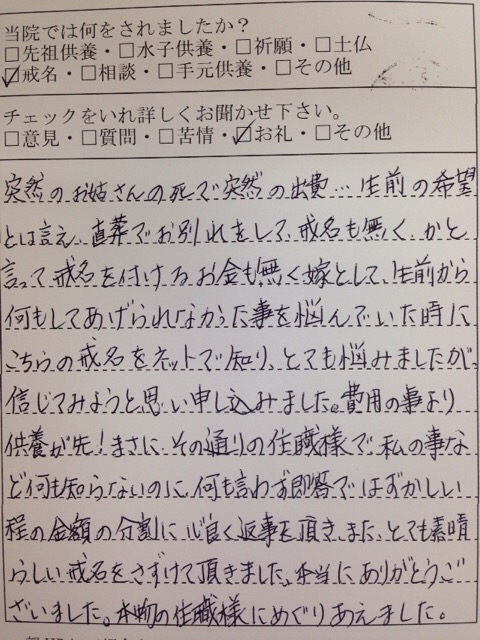 当院では何をされましたか？
□先祖供養・□水子供養・□祈願・□土仏
☑戒名・□相談・□手元供養・□その他
チェックをいれ詳しくお聞かせ下さい。
□意見・□質問・□苦情・☑お礼・□その他
突然のお姑さんの死で突然の出費…生前の希望
とは言え、直葬でお別れをして、戒名も無く、かと
言って戒名を付けるお金も無く嫁として、生前から
何もしてあげられなかった事を悩んでいた時に
こちらの戒名をネットで知り、とても悩みましたが、
信じてみようと思い申し込みました。費用の事より
供養が先！まさに、その通りの住職様で、私の事な
ど何も知らないのに、何も言わず即答ではずかしい
程の金額の分割に心良く返事を頂き、また、とても素晴
らしい戒名をさずけて頂きました。本当にありがとうご
ざいました。本物の住職様にめぐりあえました。